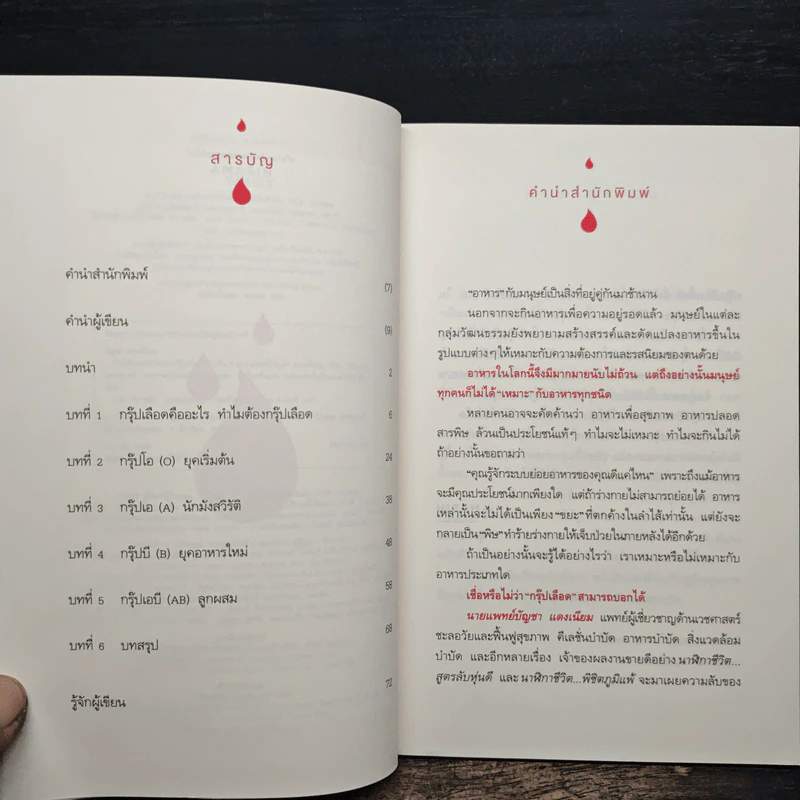 สารบัญ
คำนำสำนักพิมพ์ (7)
คำนำผู้เขียน (9)
บทนำ 2
บทที่ 1 กรุ๊ปเลือดคืออะไร ทำไมต้องกรุ๊ปเลือด 6
บทที่ 2 กรุ๊ปโอ (O) ยุคเริ่มต้น 24
บทที่ 3 กรุ๊ปเอ (A) นักมังสวิรัติ 38
บทที่ 4 กรุ๊ปบี (B) ยุคอาหารใหม่ 48
บทที่ 5 กรุ๊ปเอบี (AB) ลูกผสม 58
บทที่ 6 บทสรุป 68
รู้จักผู้เขียน 72
คำนำสำนักพิมพ์
"อาหาร" กับมนุษย์เป็นสิ่งที่อยู่คู่กันมาช้านาน
นอกจากจะกินอาหารเพื่อความอยู่รอดแล้ว มนุษย์ในแต่ละ
กลุ่มวัฒนธรรมยังพยายามสร้างสรรค์และดัดแปลงอาหารขึ้นใน
รูปแบบต่างๆ ให้เหมาะกับความต้องการและรสนิยมของตนด้วย
อาหารในโลกนี้จึงมีมากมายนับไม่ถ้วน แต่ถึงอย่างนั้นมนุษย์
ทุกคนก็ไม่ได้ "เหมาะ" กับอาหารทุกชนิด
หลายคนอาจจะคัดค้านว่า อาหารเพื่อสุขภาพ อาหารปลอด
สารพิษ ล้วนเป็นประโยชน์แท้ๆ ทำไมจะไม่เหมาะ ทำไมจะกินไม่ได้
ถ้าอย่างนั้นขอถามว่า
"คุณรู้จักระบบย่อยอาหารของคุณดีแค่ไหน" เพราะถึงแม้อาหาร
จะมีคุณประโยชน์มากเพียงใด แต่ถ้าร่างกายไม่สามารถย่อยได้ อาหาร
เหล่านั้นจะไม่ได้เป็นเพียง "ขยะ" ที่ตกค้างในลำไส้เท่านั้น แต่ยังจะ
กลายเป็น "พิษ" ทำร้ายร่างกายให้เจ็บป่วยในภายหลังได้อีกด้วย
ถ้าเป็นอย่างนั้นจะรู้ได้อย่างไรว่า เราเหมาะหรือไม่เหมาะกับ
อาหารประเภทใด
เชื่อหรือไม่ว่า "กรุ๊ปเลือด" สามารถบอกได้
นายแพทย์บัญชา แดงเนียม แพทย์ผู้เชี่ยวชาญด้านเวชศาสตร์
ชะลอวัยและฟื้นฟูสุขภาพ คีเลชั่นบำบัด อาหารบำบัด สิ่งแวดล้อม
บำบัด และอีกหลายเรื่อง เจ้าของผลงานขายดีอย่าง นาฬิกาชีวิต...
สูตรลับหุ่นดี และ นาฬิกาชีวิต...พิชิตภูมิแพ้ จะมาเผยความลับของ